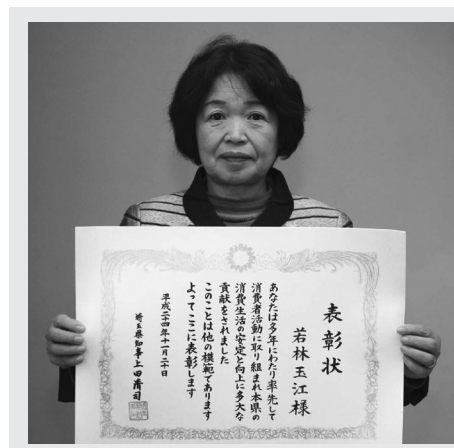 表彰状
若林玉江様
あなたは多年にわたり率先して
消費者活動に取り組まれ本県の
消費生活の安定と向上に多大な
貢献をされました
このことは他の模範であります
よってここに表彰します
平成二十四年十一月二十日
埼玉県知事上田清司